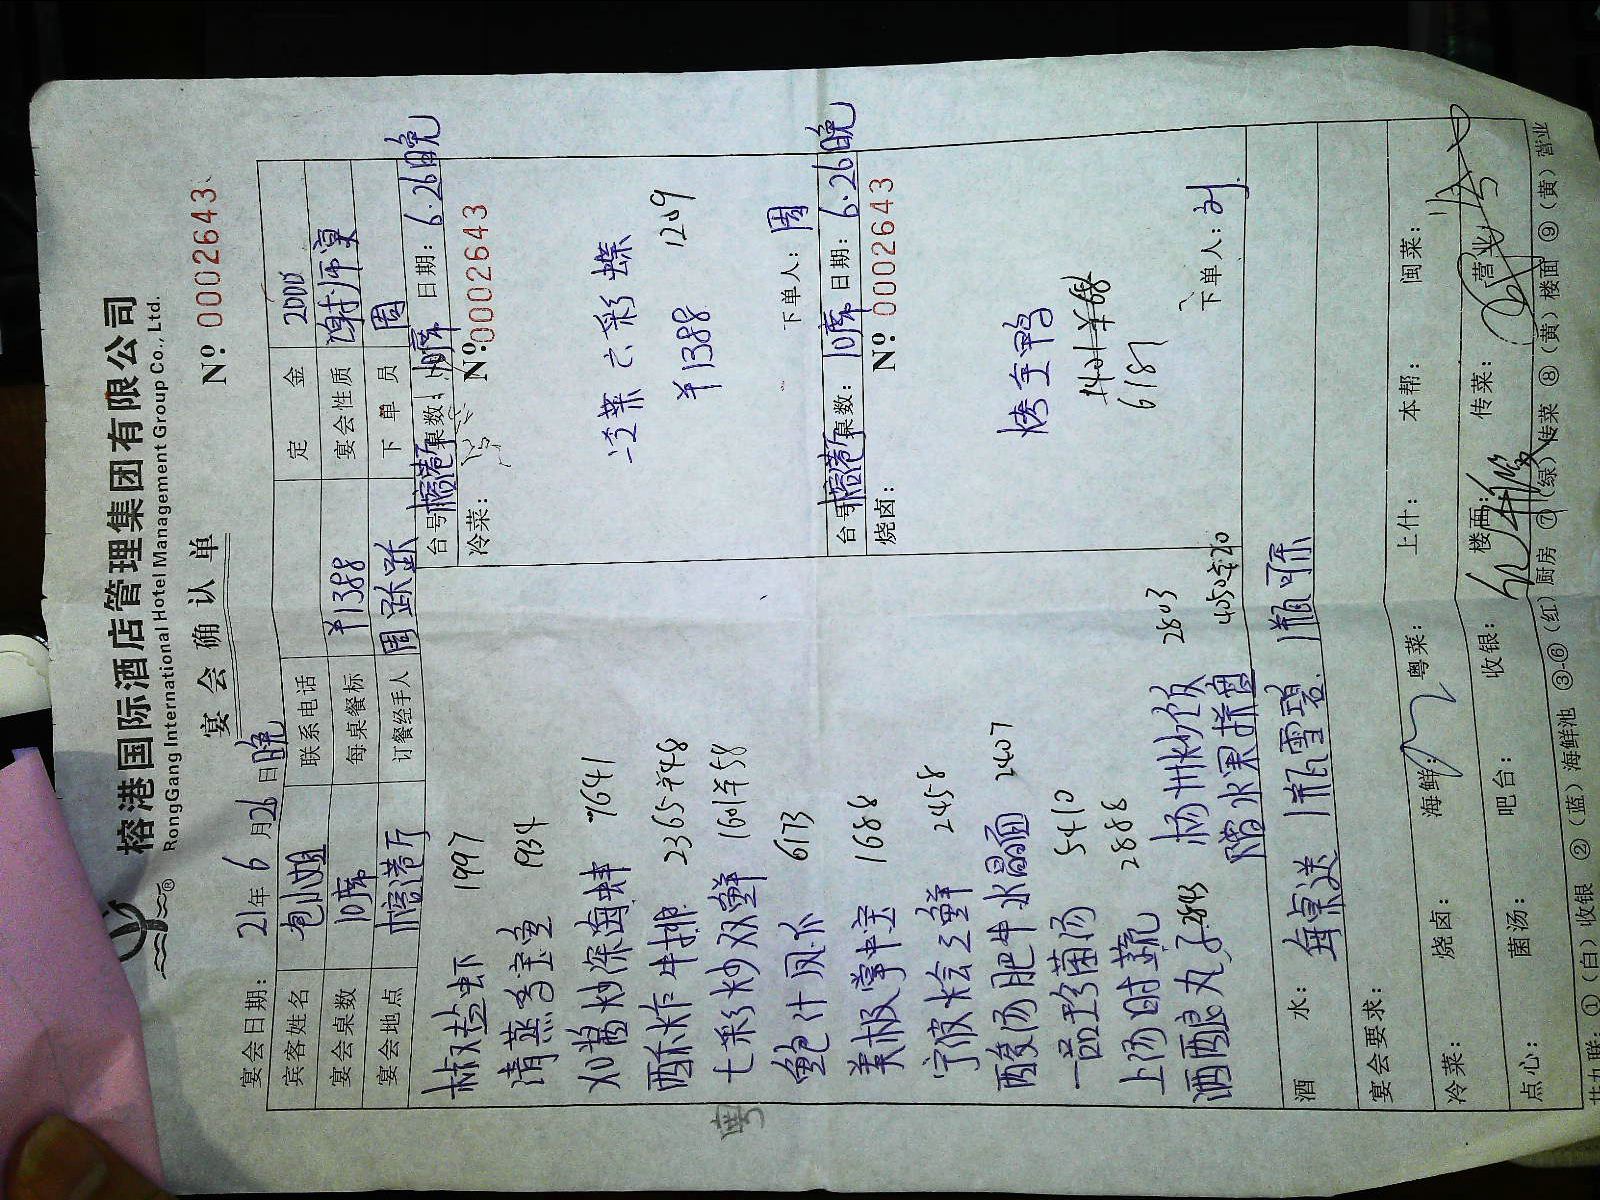 榕港国际酒店管理集团有限公司
RongGang International Hotel Management Group Co., Ltd.
宴会确认单
Nº 0002643
宴会日期: 21年6月26日晚
宾客姓名 包小姐 联系电话 定金 2000
宴会桌数 10席 每桌餐标 ¥1388 宴会性质 谢师宴
宴会地点 榕港厅 订餐经手人 周跃跃 下单员 周
椒盐虾 1997
清蒸多宝鱼 1934
XO酱炒深海蚌 7641
酥炸牛排 2365 半48
七彩炒双鲜 1601 半58
鲍汁凤爪 6173
美极掌中宝 1688
宁波烩三鲜 2458
酸汤肥牛水晶面 2407
一品珍菌汤 5410
上汤时蔬 2888
酒酿丸子 2843
扬州炒饭 2803
水果拼盘 4050
台号 榕港厅 桌数: 10席 日期: 6.26晚
冷菜:
Nº: 0002643
六彩蝶
¥1388 1209
下单人: 周
台号 榕港厅 桌数: 10席 日期: 6.26晚
烧卤:
Nº 0002643
烤全鸭
1401 ¥68
6187
下单人: 刘
酒水: 每桌送1瓶雪碧 1瓶可乐
宴会要求:
冷菜: 烧卤: 海鲜: 粤菜: 上什: 本帮: 闽菜:
点心: 菌汤: 吧台: 收银: 楼面: 传菜: 营业
共九联: ①(白)收银 ②(蓝)海鲜池 ③-⑥(红)厨房 ⑦(绿)传菜 ⑧(黄)楼面 ⑨(黄)营业